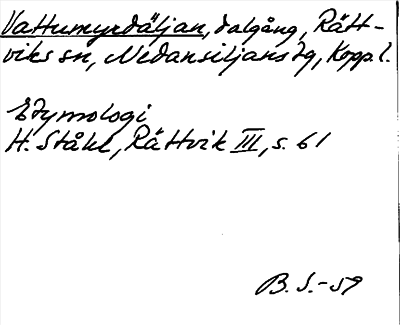 Vattumyrdäljan, dalgång, Rätt-
viks sn, Nedansiljans tg, Kopp. l.
Etymologi
H. Ståhl, Rättvik III, s. 61
B. S. -59